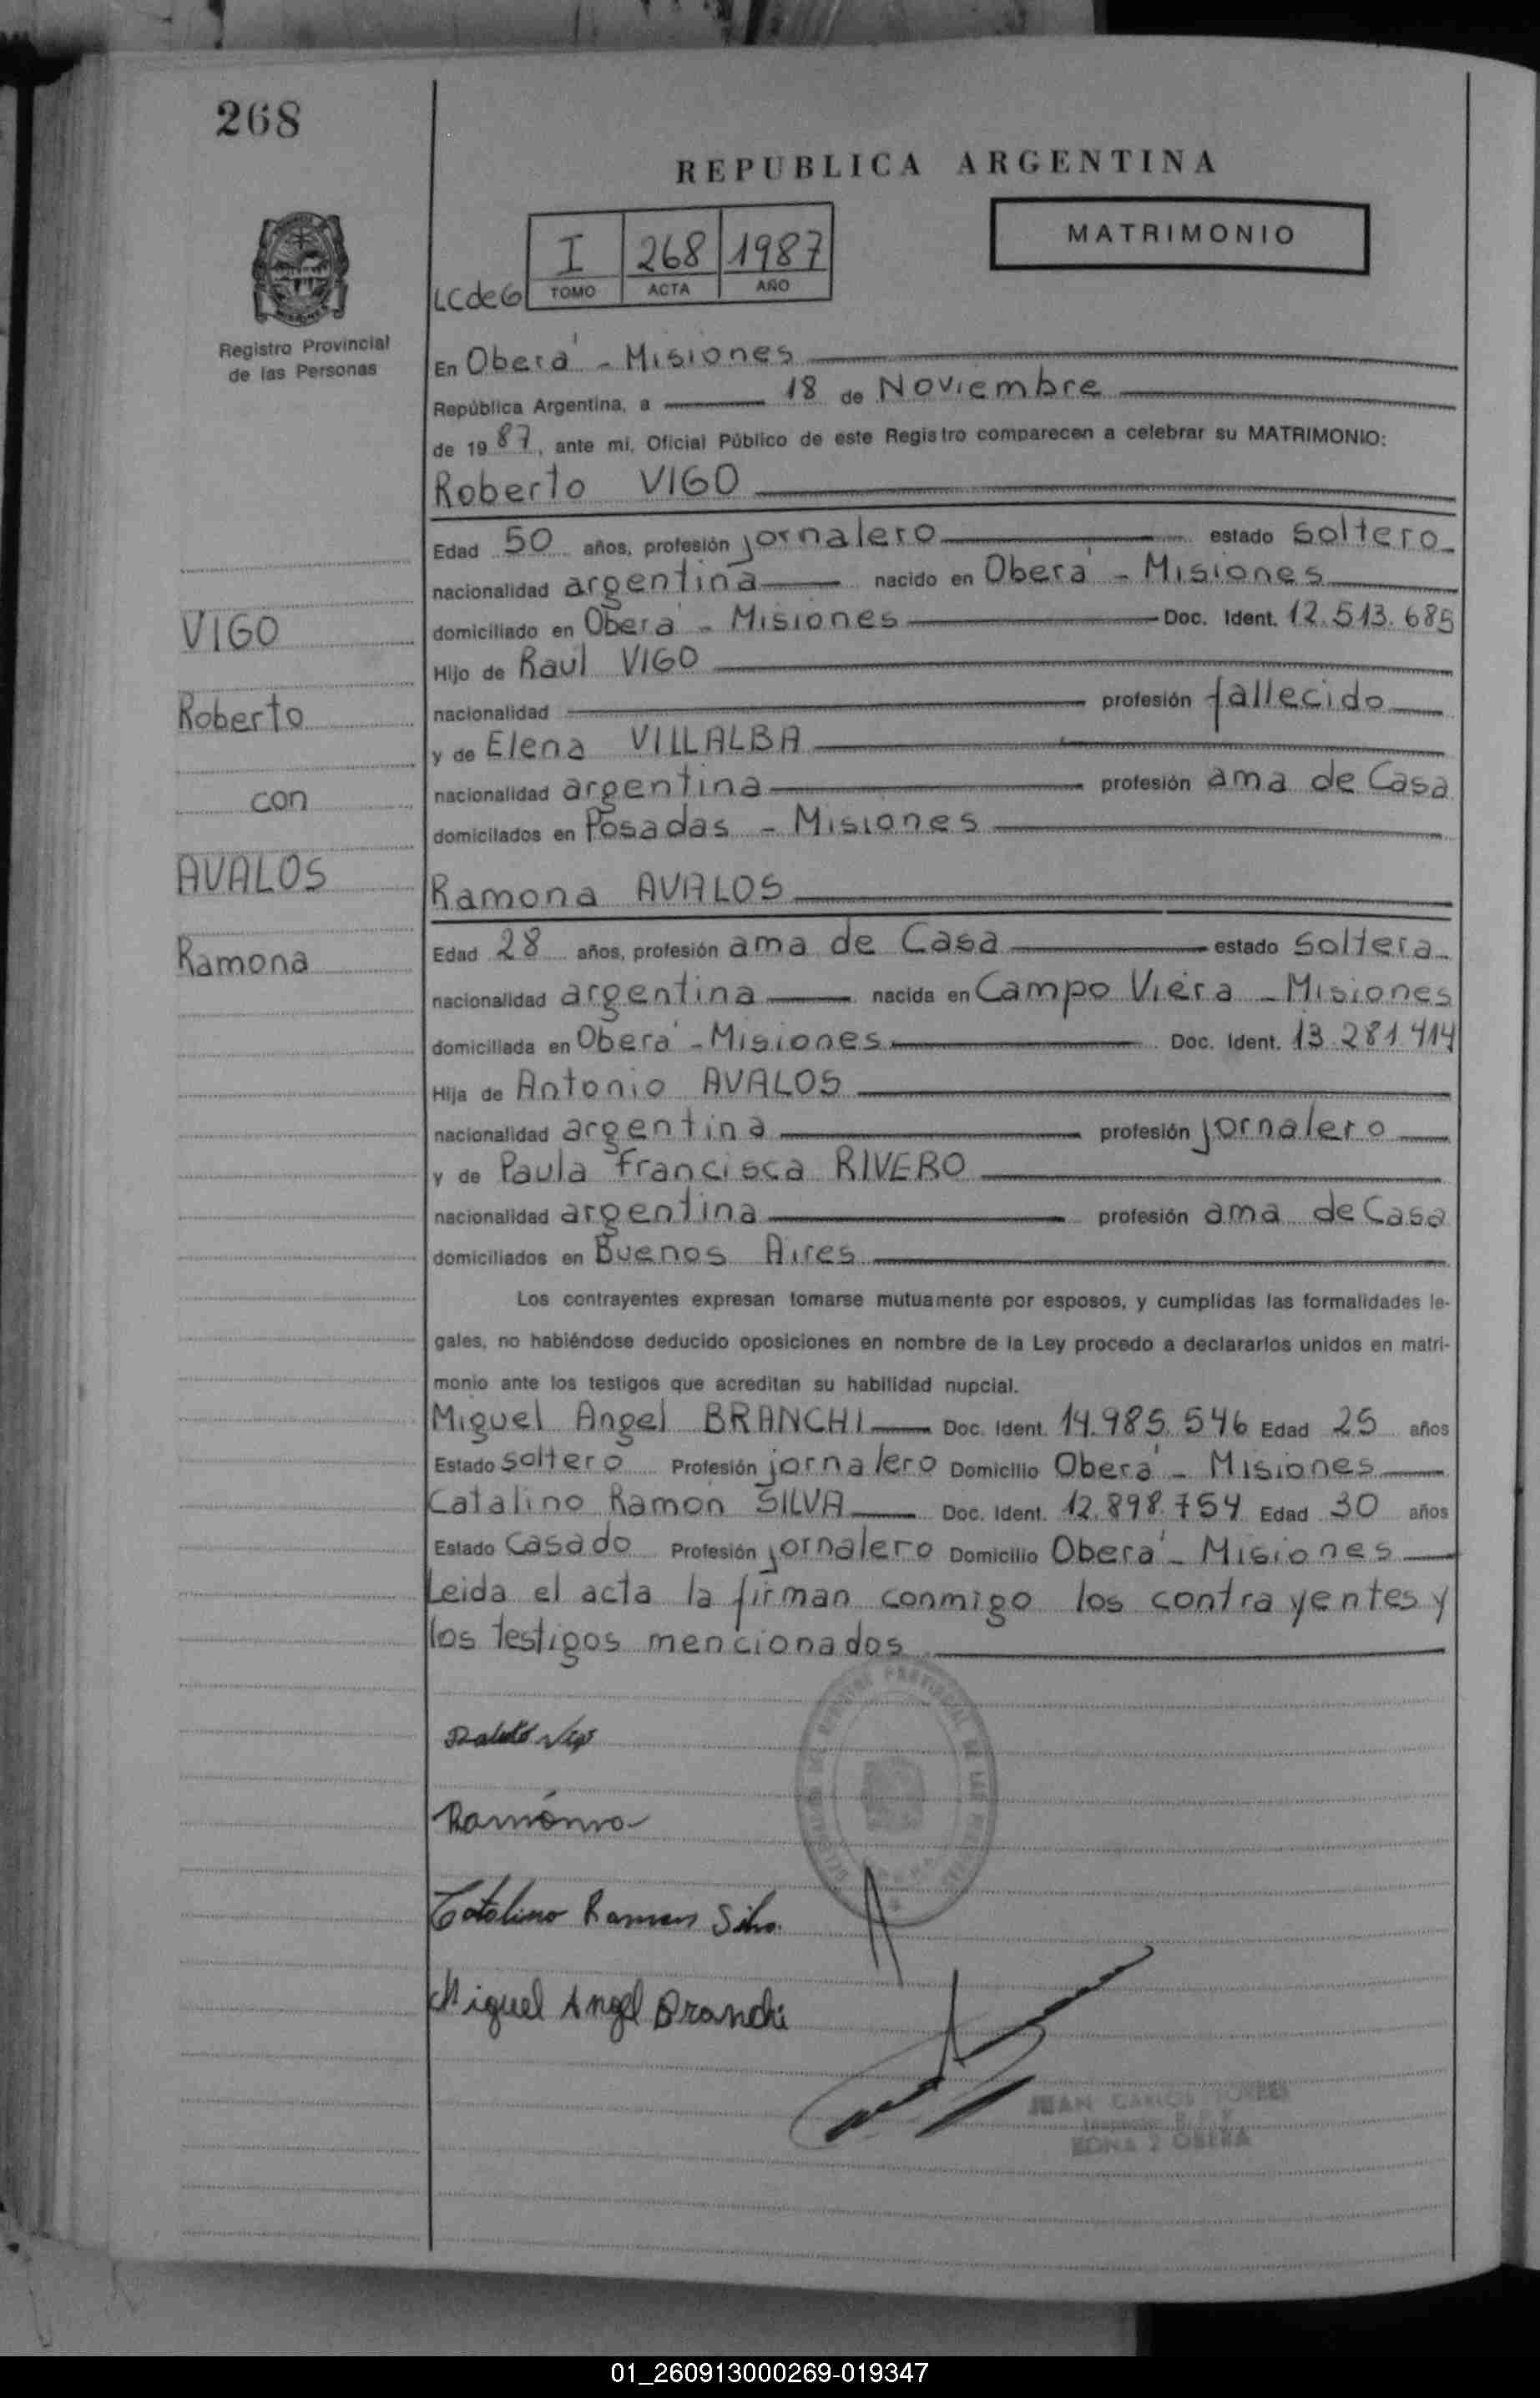 268
REPUBLICA ARGENTINA
MATRIMONIO
I 268 1987
LCdeG TOMO ACTA AÑO
Registro Provincial
de las Personas
En Oberá - Misiones
República Argentina, a 18 de Noviembre
de 1987, ante mi, Oficial Público de este Registro comparecen a celebrar su MATRIMONIO:
Roberto VIGO
Edad 50 años, profesión jornalero estado soltero
nacionalidad argentina nacido en Oberá - Misiones
VIGO
domiciliado en Oberá - Misiones Doc. Ident. 12.513.685
Hijo de Raul VIGO
Roberto
nacionalidad profesión fallecido
y de Elena VILLALBA
con
nacionalidad argentina profesión ama de Casa
domicilados en Posadas - Misiones
AVALOS
Ramona AVALOS
Ramona
Edad 28 años, profesión ama de Casa estado soltera
nacionalidad argentina nacida en Campo Viera - Misiones
domiciliada en Oberá - Misiones Doc. Ident. 13.281.414
Hija de Antonio AVALOS
nacionalidad argentina profesión jornalero
y de Paula Francisca RIVERO
nacionalidad argentina profesión ama de Casa
domiciliados en Buenos Aires
Los contrayentes expresan tomarse mutuamente por esposos, y cumplidas las formalidades le-
gales, no habiéndose deducido oposiciones en nombre de la Ley procedo a declararlos unidos en matri-
monio ante los testigos que acreditan su habilidad nupcial.
Miguel Angel BRANCHI Doc. Ident. 14.985.546 Edad 25 años
Estado soltero Profesión jornalero Domicilio Oberá - Misiones
Catalino Ramón SILVA Doc. Ident. 12.898.754 Edad 30 años
Estado Casado Profesión jornalero Domicilio Oberá - Misiones
Leida el acta la firman conmigo los contrayentes y
los testigos mencionados
Ramona
Catalino Ramon Silva
Miguel Angel Branchi
JUAN CARLOS TORRES
ZONA 2 OBERA
01_260913000269-019347